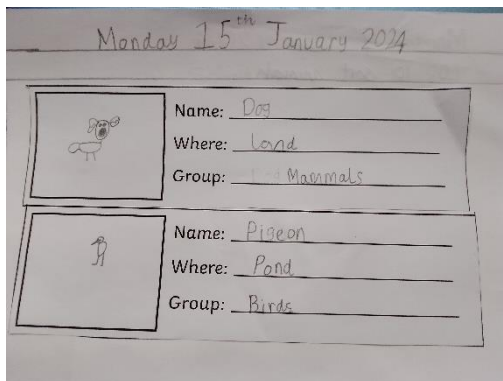 Monday 15th January 2024
Name: Dog
Where: Land
Group: Mammals
Name: Pigeon
Where: Pond
Group: Birds